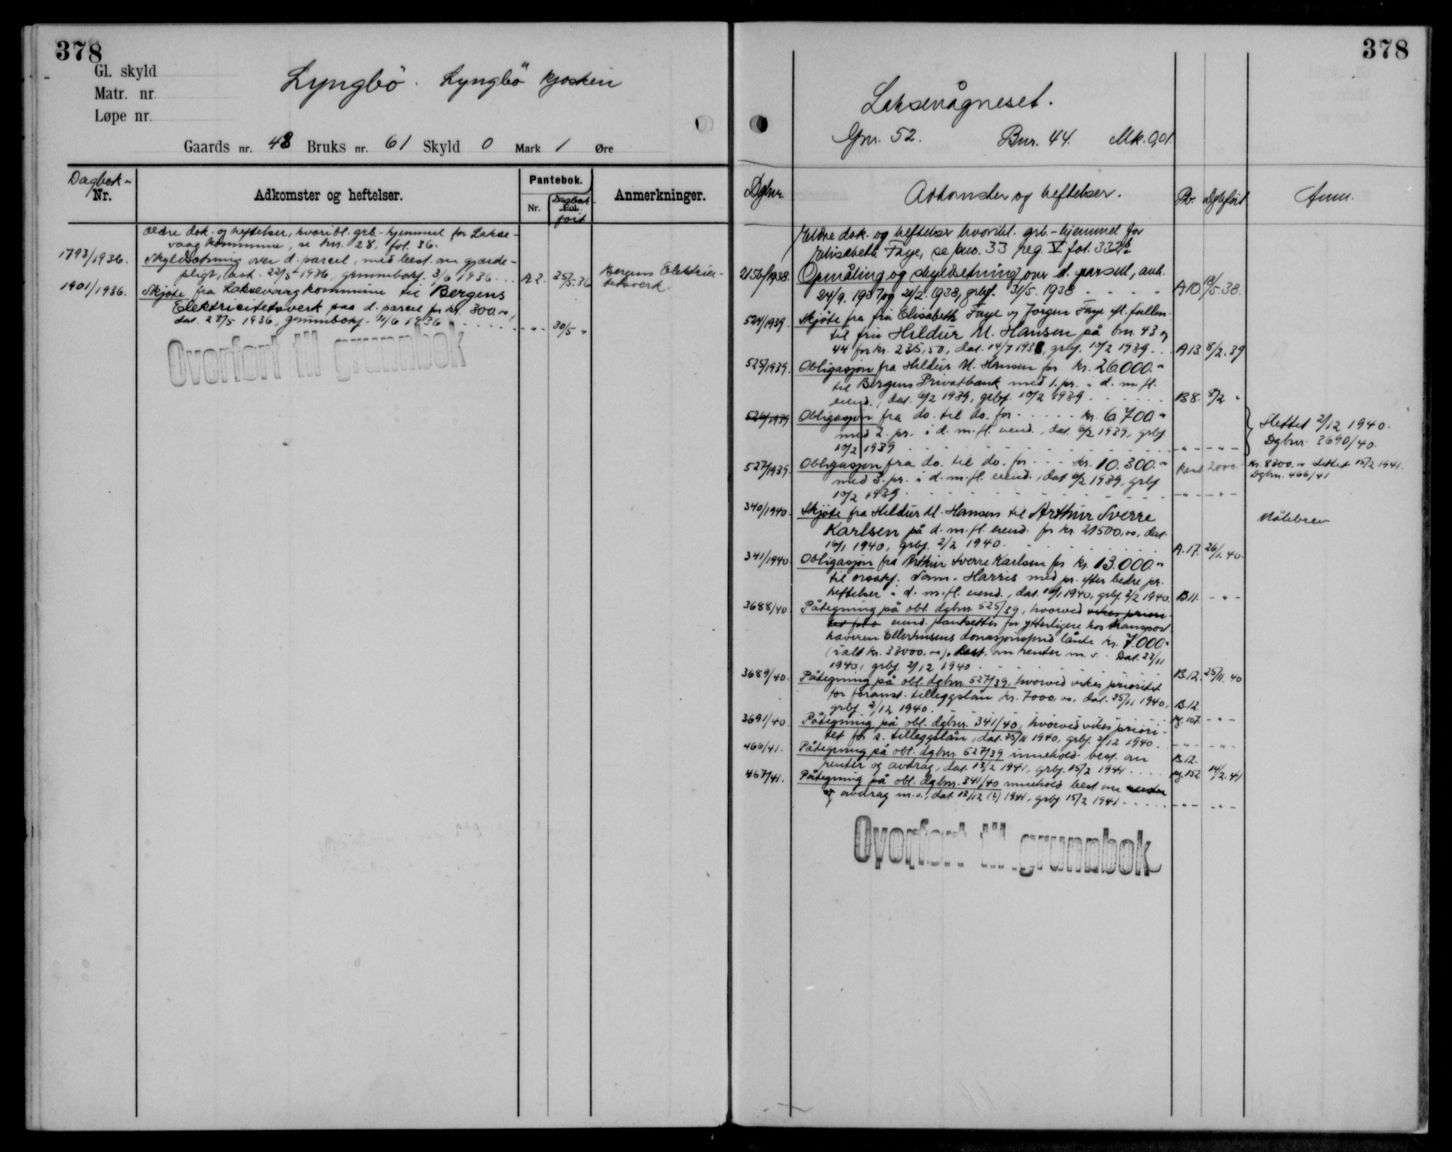 378
Gl. skyld
Matr. nr.
Løpe nr.
Lyngbö. Lyngbö kjosken
Gaards nr. 48 Bruks nr. 61 Skyld 0 Mark 1 Øre
Dagbok-Nr.
Adkomster og heftelser.
Pantebok.
Nr.
Fol.
Dagbok ført
Anmerkninger.
Ældre dok. og heftelser, hvoribl. grb.-hjemmel for Lakse-
vaag kommune, se bnr. 28. fol. 36.
1793/1936. Skyldsetning over d. parcel, med best. om gjærde-
pligt, avh. 22/5 1936, grunnbokf. 3/6 1936 A 2 25/5-36
Bergens Elektrici-
tetsverk
1901/1936. Skjøte fra Laksevaag kommune til Bergens
Elektricitetsverk paa d. parcel for kr. 300.00,
dat. 28/5 1936, grunnbokf. 11/6 1936 " " 30/5 "
Overført til grunnbok
378
Laksevågneset.
Gnr. 52. Bnr. 44. Mk. 0,01
Dgbnr. Adkomster og heftelser. Pb. Dgb.ført Anm.
Eldre dok. og heftelser hvoribl. grb-hjemmel for
Elisabeth Faye, se bno. 33 reg. V fol. 332b
2156/1938. Opmåling og skyldsetning over d. parsell, avh.
24/9. 1937 og 21/2. 1938, grbf. 31/5. 1938 A10 19/5-38.
524/1939 Skjöte fra fru Elisabeth Faye og Jørgen Faye eft. fullm.
til fru Hildur M. Hansen på bnr 43 og
44 for kr. 235,50, dat. 14/7 1938, grbf. 10/2 1939 A13 8/2.39
525/1939. Obligasjon fra Hildur M. Hansen for kr. 26000.-
til Bergens Privatbank med 1. pr. i d. m. fl.
eiend., dat. 6/2 1939, grbf. 10/2 1939 B8. 8/2 "
526/1939 Obligasjon fra do. til do. for kr. 6700.-
med 2. pr. i d. m. fl. eiend., dat. 6/2 1939, grbf
10/2 1939
Slettet 2/12 1940.
Dgbnr. 3690/40.
527/1939 Obligasjon fra do. til do. for kr. 10.300.-
med 3. pr. i d. m. fl. eiend., dat 6/2 1939, grbf
10/2 1939
Rest 2000
Kr. 8300,00 slettet 15/2 1941.
Dgbnr. 466/41
340/1940. Skjöte fra Hildur M. Hansen til Arthur Sverre
Karlsen på d. m. fl. eiend. for kr 21500,00, dat.
16/1 1940, grbf. 2/2 1940. A.17. 26/1.40.
Målebrev
341/1940 Obligasjon fra Arthur Sverre Karlsen for kr. 13.000.-
til orsakf. Harris med pr. efter bedre pr.
heftelser i d. m. fl. eiend., dat. 16/1 1940, grbf. 2/2 1940. B11. - " -
3688/40. Påtegning på obl. dgbnr. 525/39, hvorved vikes priori-
tet for eiend. pantsettes for ytterligere hos transport-
haveren Ellerhusens donasjonsfond lånte kr. 7000.-
(ialt kr. 33000,00), best. om renter m.v. Dat. 23/11
1940, grbf. 2/12 1940 B.12. 25/11.40
3689/40. Påtegning på obl. dgbnr. 527/39, hvorved vikes prioritet
for foranst. tilleggslån kr. 7000,00, dat. 25/11 1940,
grbf. 2/12 1940. B.12
3691/40. Påtegning på obl. dgbnr. 341/40, hvorved vikes priori-
tet for s. tilleggslån, dat. 25/11 1940, grbf. 2/12 1940.
pg. 107 - " -
466/41. Påtegning på obl. dgbnr. 527/39 innehold. best. om
renter og avdrag, dat. 13/2 1941, grbf. 15/2 1941. B.12. pg. 152 14/2.41
467/41. Påtegning på obl. dgbnr. 341/40 innehold. best om renter
og avdrag m.v., dat 12/12 (2) 1941, grbf 15/2 1941.
Overført til grunnbok